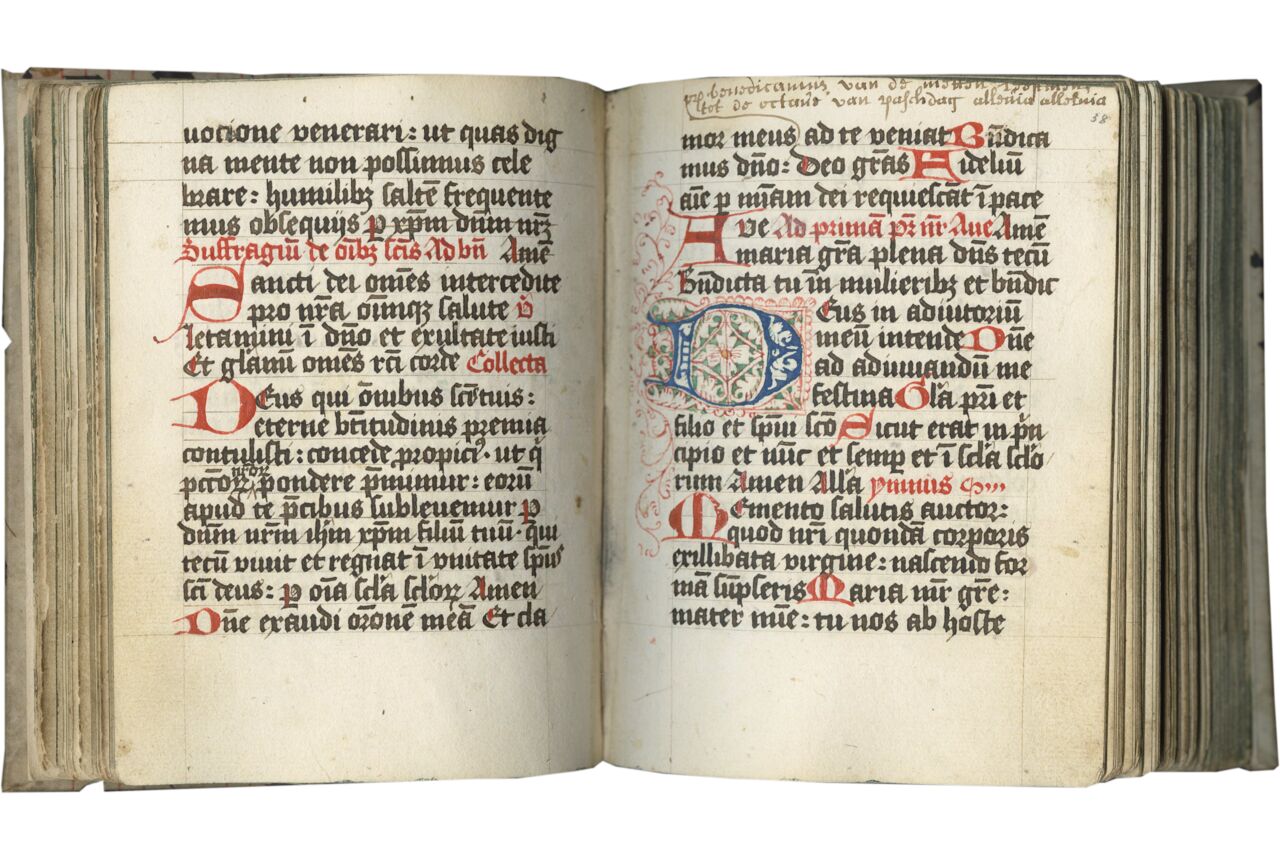 uotione venerari: ut quas dig
na mente non possumus cele
brare: humilibꝫ saltē frequente
mus obsequijs ꝑ xp̄m dn̄m nr̄ꝫ
Suffragiū de oībꝫ sc̄is Ad bn̄ Amē
Sancti dei om̄es intercedite
pro nr̄a om̄iumqꝫ salute v̄
letamini ī dn̄o et exultate iusti
Et gl̄amī om̄es rc̄i corde Collecta
Deus qui ōnibus sc̄is tuis:
eterne bt̄itudinis premia
contulisti: concede propici'· ut q̄
pcc̄torꝝ nr̄orꝝ pondere p̄mimur: eorū
apud te p̄cibus subleuemur ꝑ
dn̄m nr̄m ih̄m xp̄m filiū tuū· qui
tecū viuit et regnat ī vnitate sp̄us
sc̄i deus: ꝑ oīa sc̄la sc̄lorꝝ Amen
Dn̄e exaudi or̄onē meā Et cla
benedicamus van de metten
tot de octave van paschdag alleluia alleluia
58
mor meus ad te veniat Bn̄dica
mus dn̄o: Deo gr̄as Fideliū
aīe ꝑ mīam dei requiescāt ī pace
Ave Ad primā pr̄ nr̄ Aue Amē
maria gr̄a plena dn̄s tecū
Bn̄dicta tu in mulieribꝫ et bn̄dic
Deus in adiutoriū
meū intende Dn̄e
ad adiuuandū me
festina Gl̄a pr̄i et
filio et sp̄iu sc̄o Sicut erat in p̄n
cipio et nūc et semp̄ et ī sc̄la sc̄lo
rum Amen All̄a ymnus
Memento salutis auctor:
quod nr̄i quondā corporis
exillibata virgine: nascendo for
mā sūpseris Maria mr̄ gr̄e:
mater mīe: tu nos ab hoste